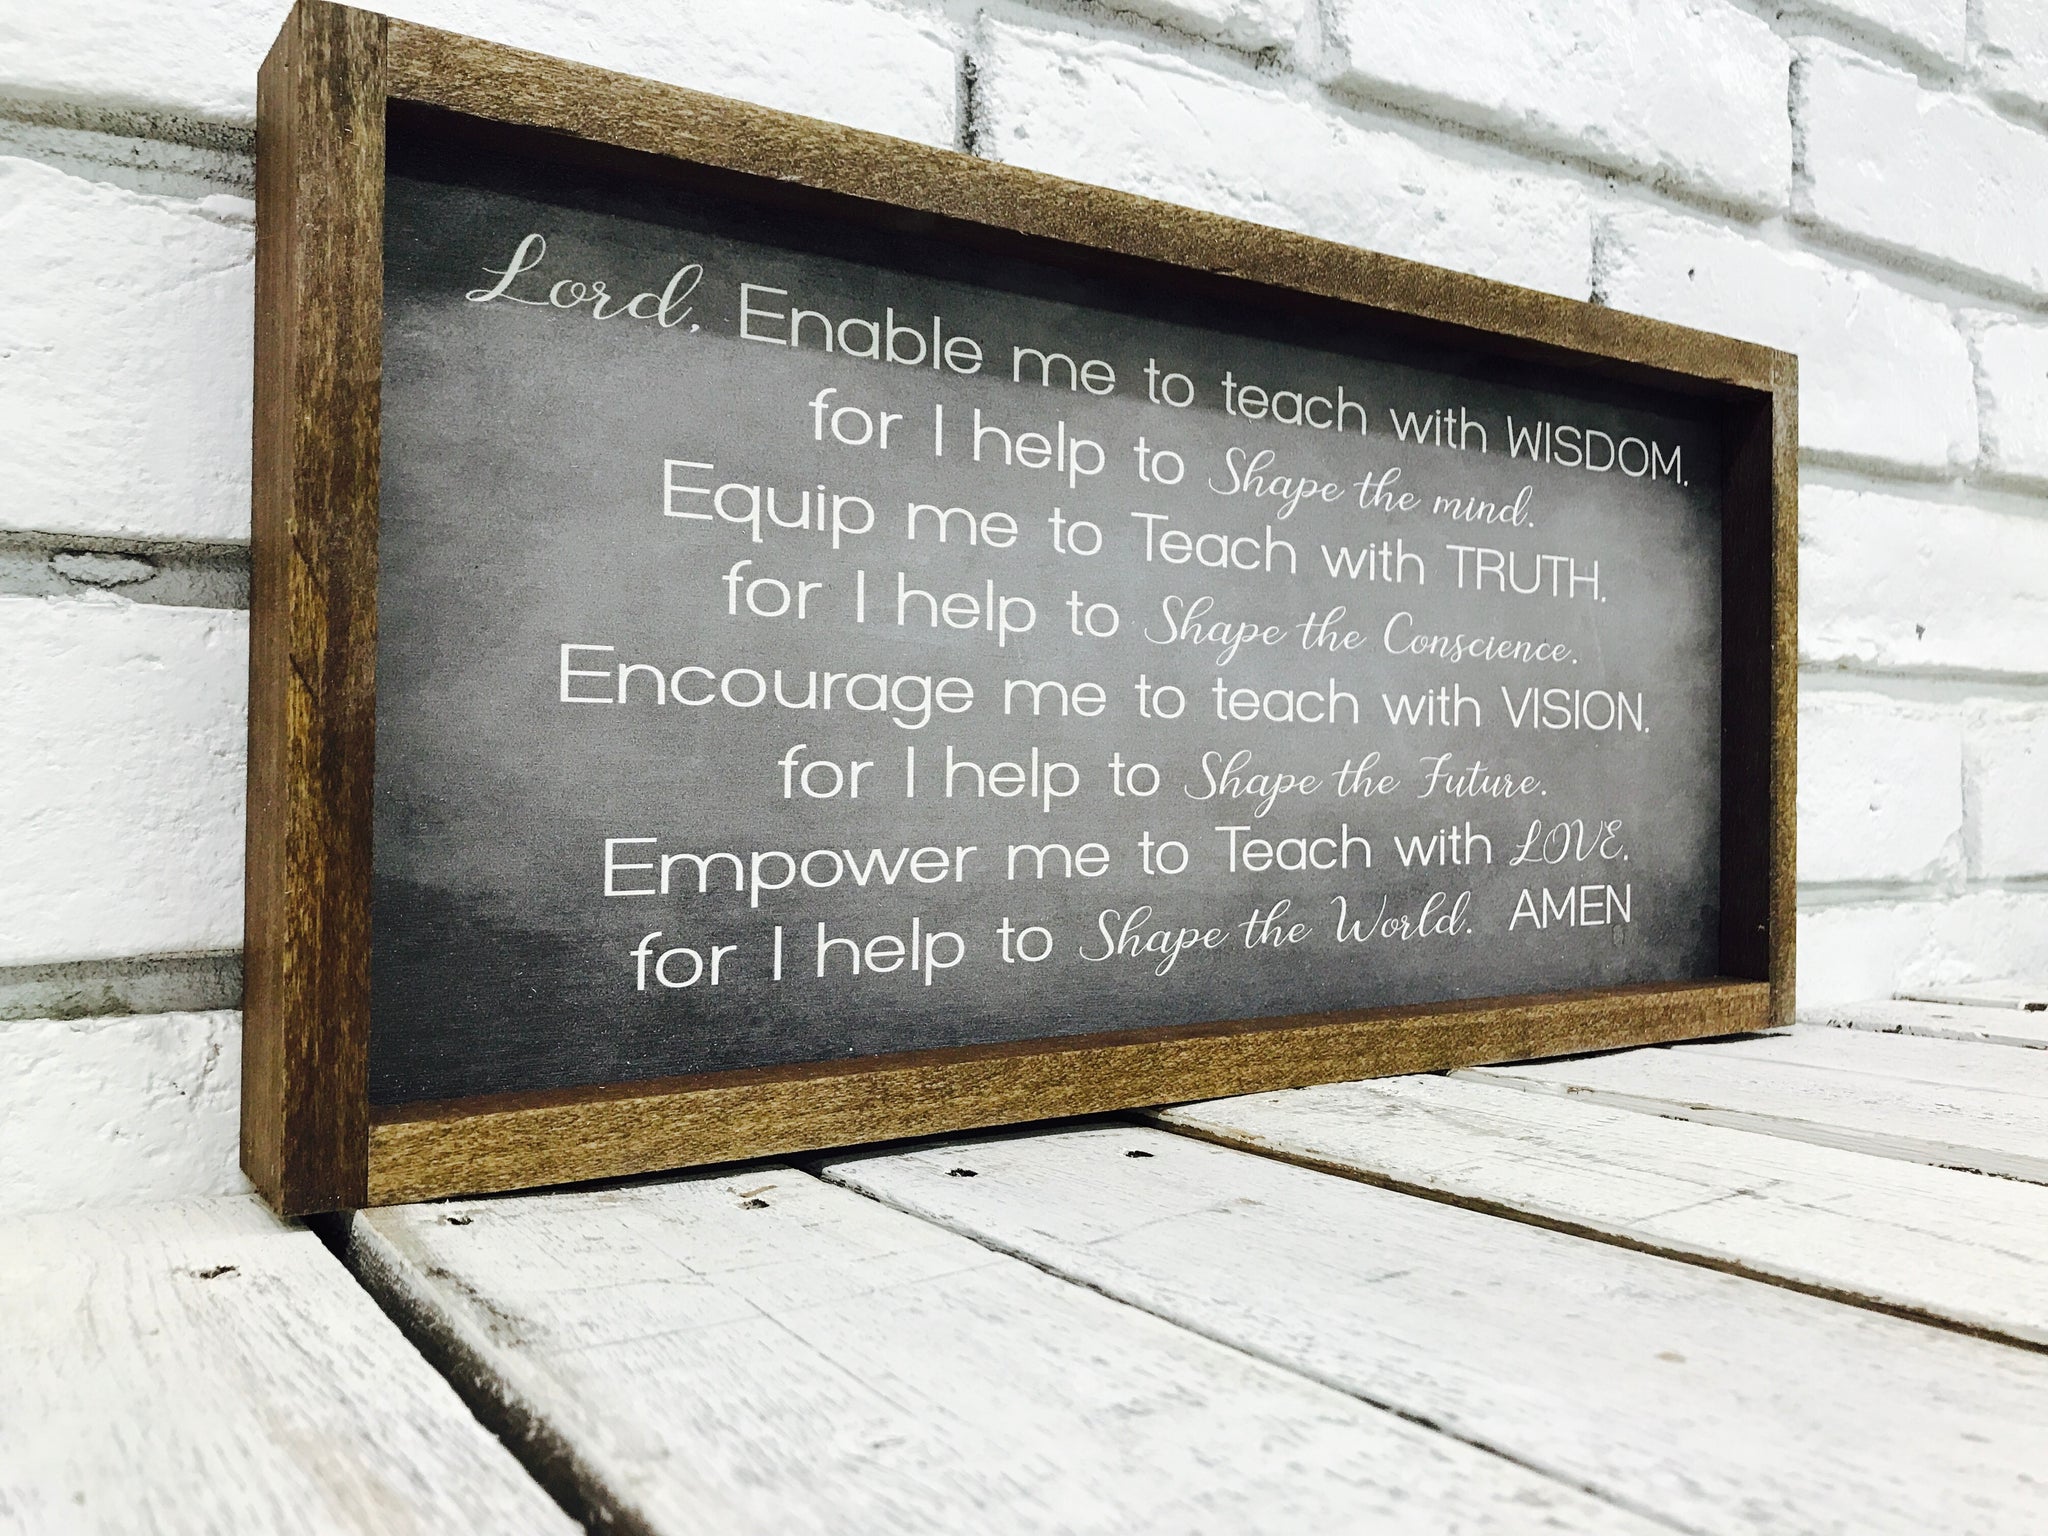 Lord, Enable me to teach with WISDOM,
for I help to Shape the mind.
Equip me to Teach with TRUTH,
for I help to Shape the Conscience.
Encourage me to teach with VISION,
for I help to Shape the Future.
Empower me to Teach with LOVE,
for I help to Shape the World. AMEN